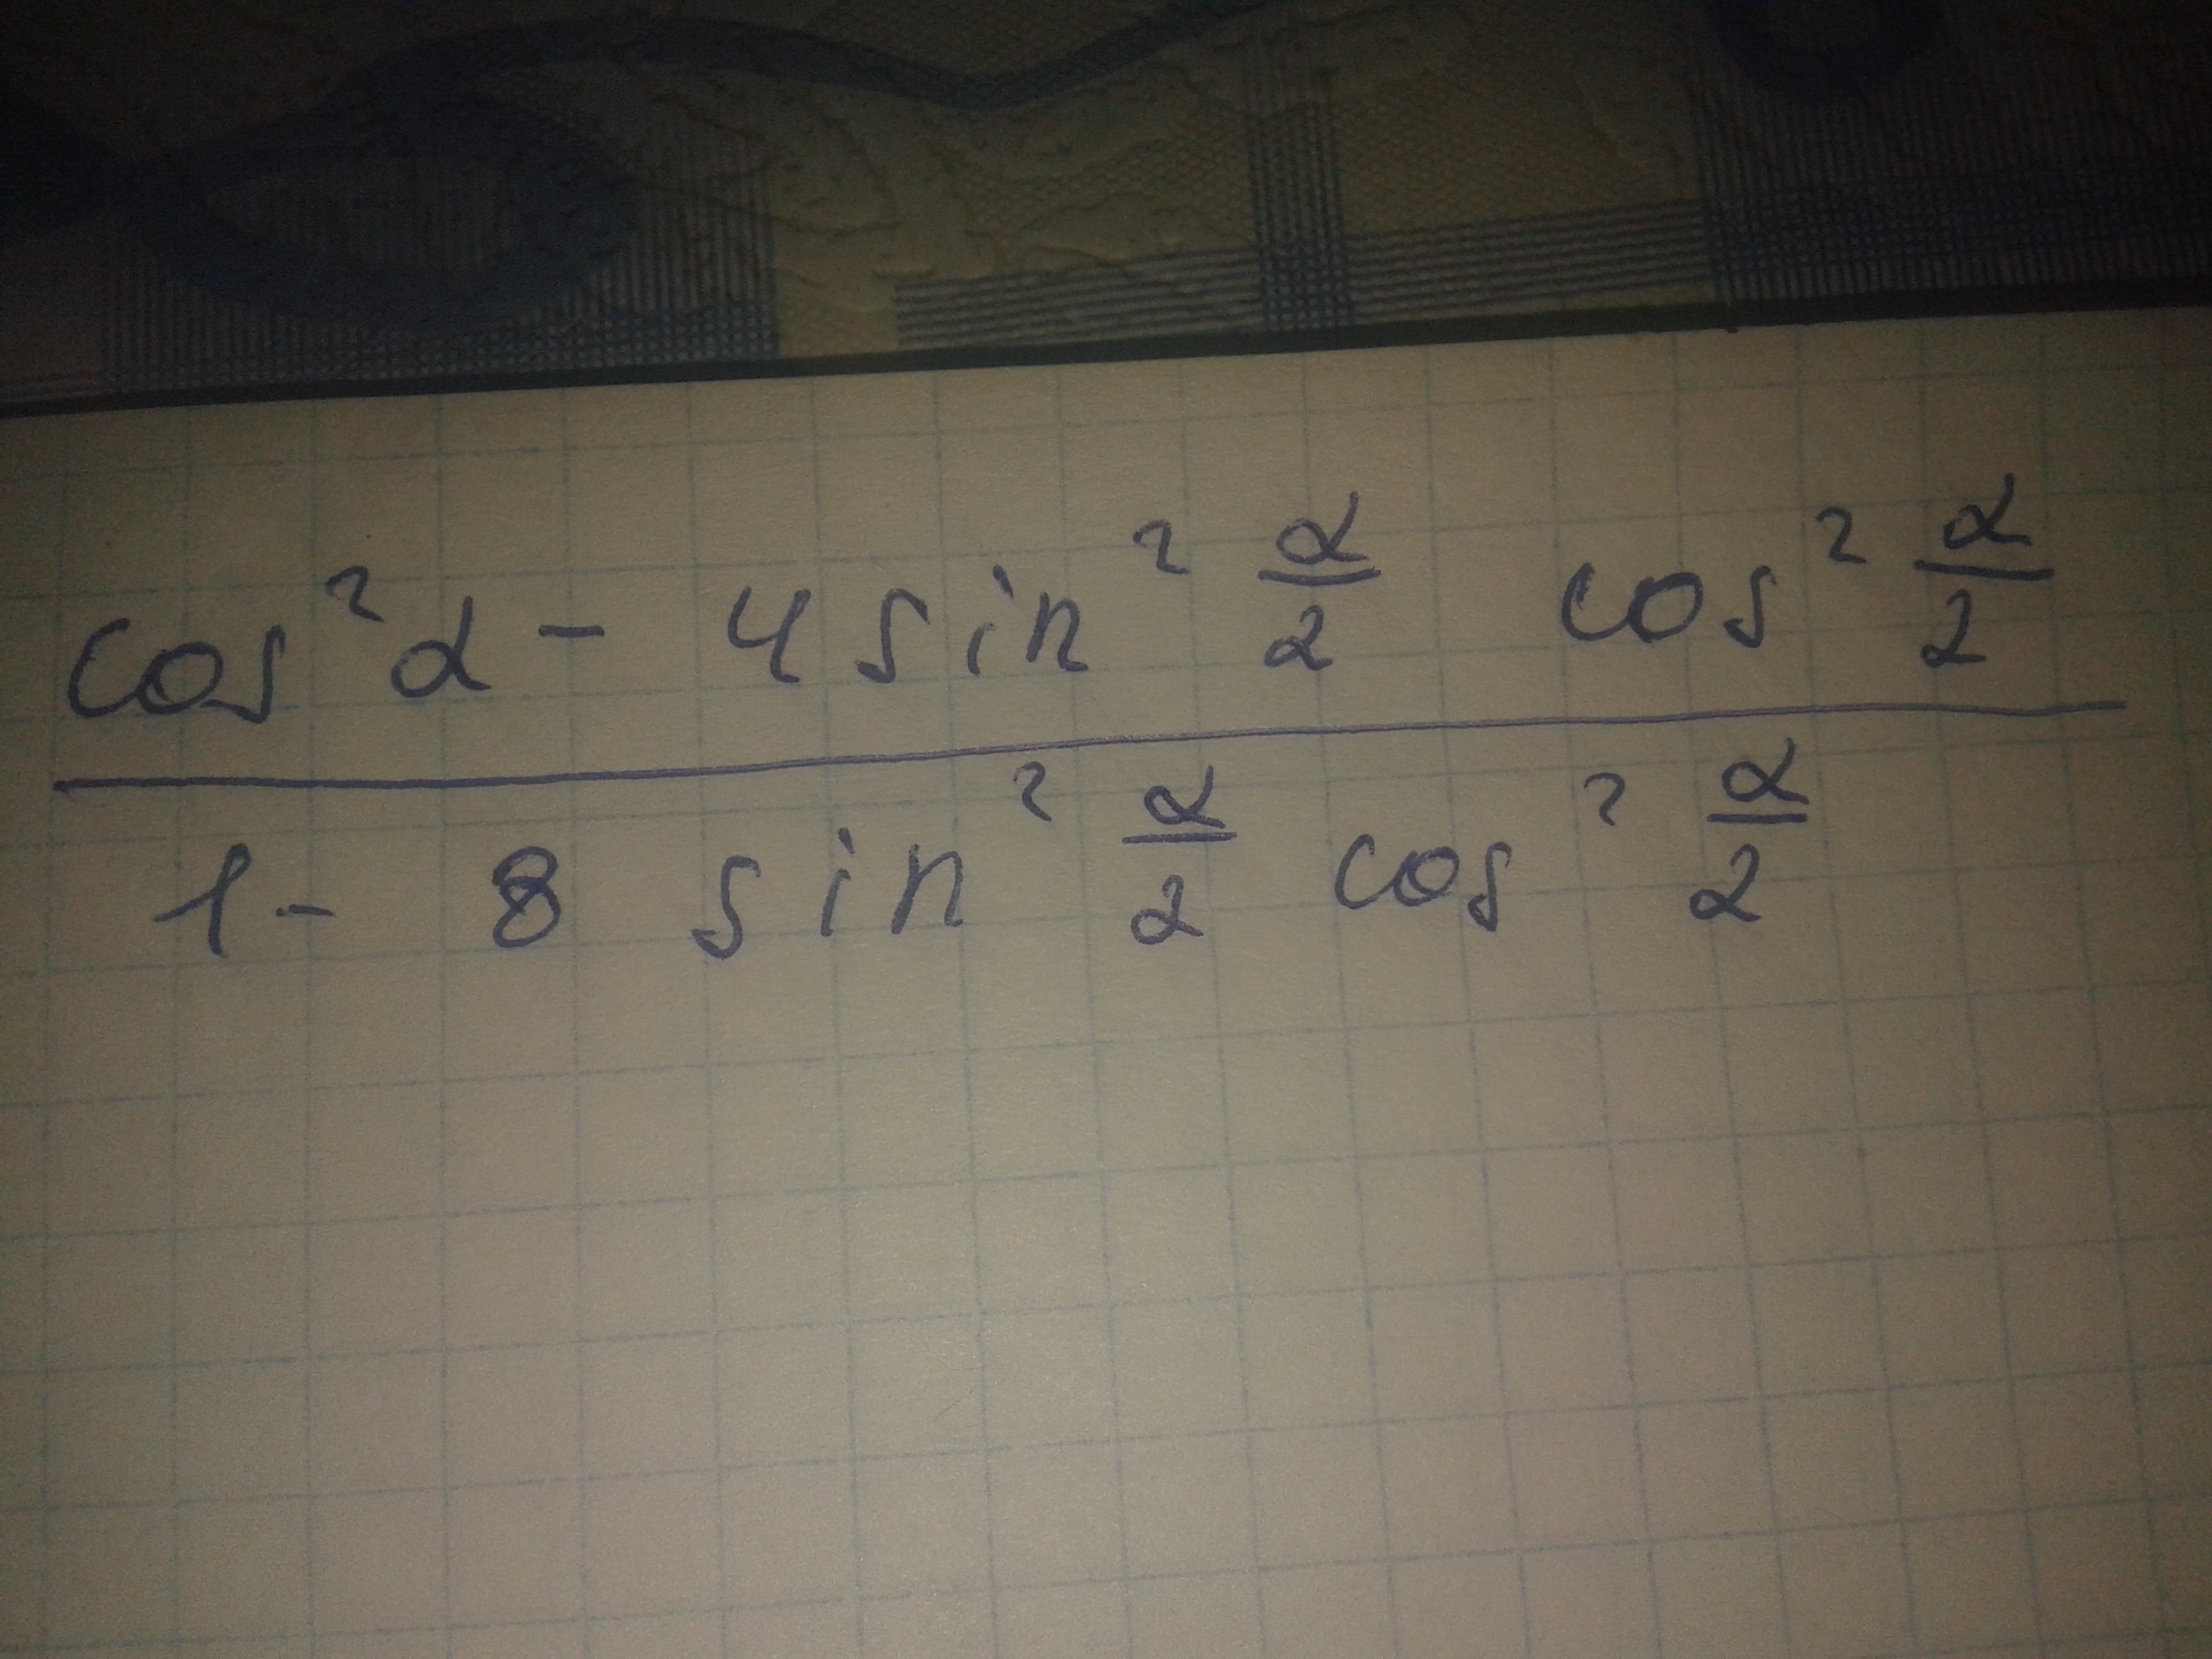 cos²α - 4 sin² α/2 cos² α/2
1 - 8 sin² α/2 cos² α/2